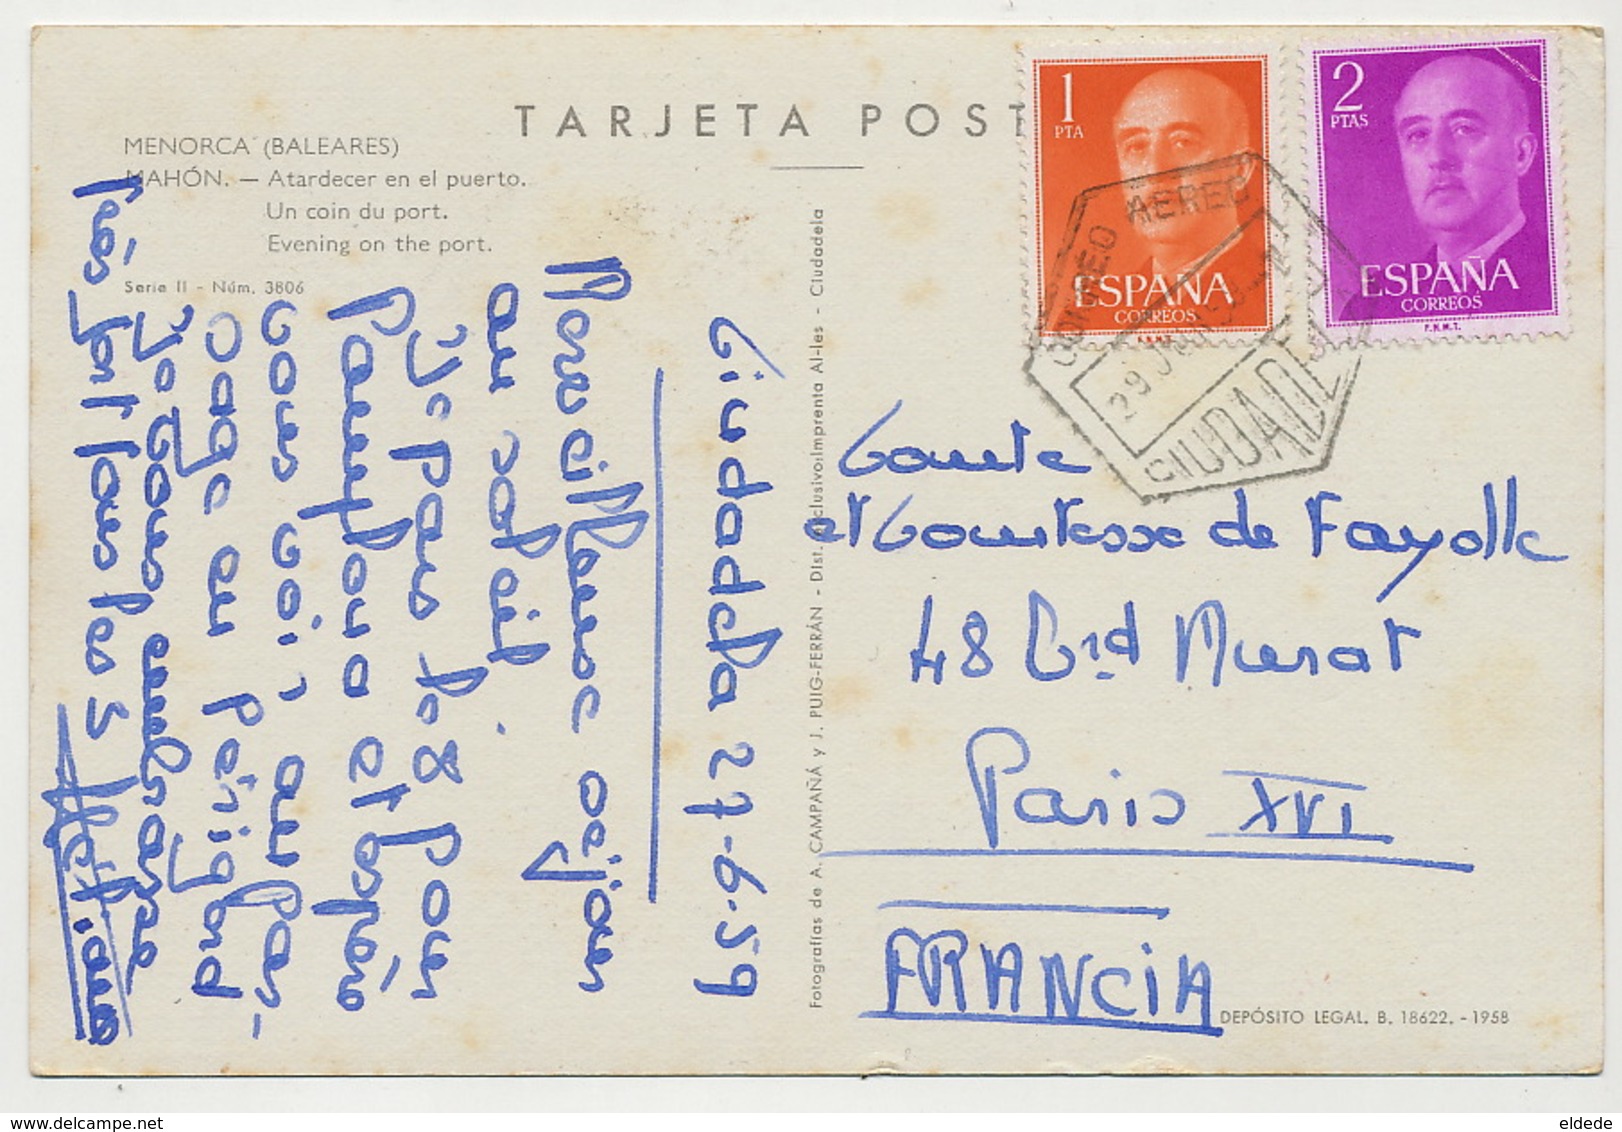 TARJETA POST
MENORCA (BALEARES)
MAHÓN. — Atardecer en el puerto.
Un coin du port.
Evening on the port.
Serie II - Núm. 3806
1
PTA
ESPAÑA
CORREOS
F.N.M.T.
2
PTAS
ESPAÑA
CORREOS
F.N.M.T.
CORREO AEREO
29 JUN
CIUDADE
Ciudadela 27-6-59
Merveilleuse séjour
au soleil.
Je pars le 8 pour
Pampelona et espère
vous voir au pas-
sage au Périgord
Je vous embrasse
très fort tous les 5
Fotografías de A. CAMPAÑÁ y J. PUIG-FERRÁN - Dist. exclusivo: Imprenta Al-les - Ciudadela
Comte
et Comtesse de Fayolle
48 Brd Murat
Paris XVI
FRANCIA
DEPÓSITO LEGAL. B. 18622. - 1958
eldede